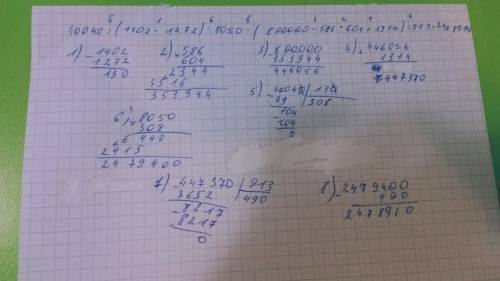 5 1 6 8 3 2 4 7
40040 : (1402 - 1272) · 8050 - (800000 - 586 · 604 + 1314) : 913 = 2478910
1) - 1402 2) × 586 3) - 800000 4) + 446056
1272 604 353944 1314
130 + 2344 446056 447370
3516 5) - 40040 | 130
353944 39 308
- 104
104
0
6) × 8050
308
+ 6440
2415
2479400
7) - 447370 | 913 8) - 2479400
3652 490 490
- 8217 2478910
8217
0